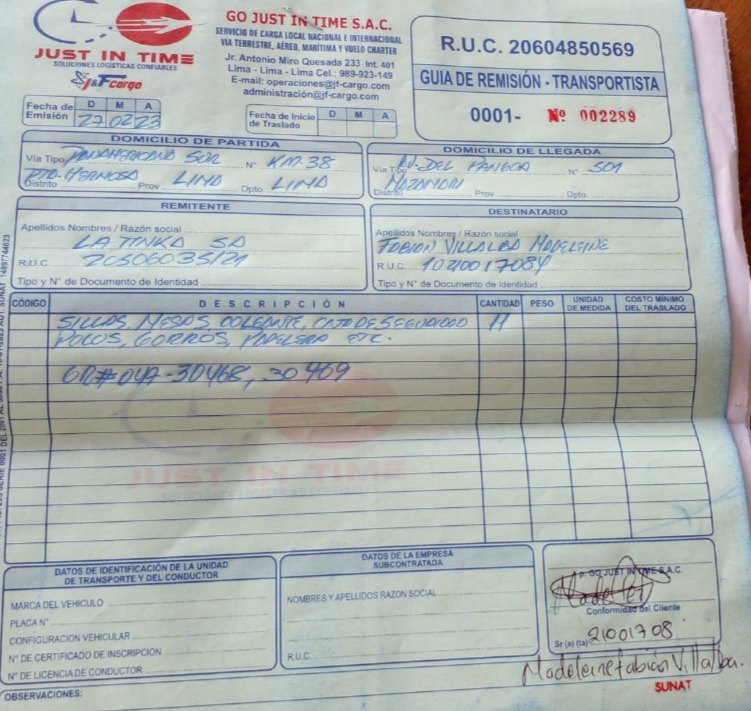 JUST IN TIME
SOLUCIONES LOGISTICAS CONFIABLES
J&F cargo
GO JUST IN TIME S.A.C.
SERVICIO DE CARGA LOCAL NACIONAL E INTERNACIONAL
VÍA TERRESTRE, AÉREO, MARÍTIMA Y VUELO CHARTER
Jr. Antonio Miro Quesada 233 Int. 401
Lima - Lima - Lima Cel.: 989-923-149
E-mail: operaciones@jf-cargo.com
administración@jf-cargo.com
R.U.C. 20604850569
GUIA DE REMISIÓN - TRANSPORTISTA
0001- Nº 002289
Fecha de Emisión D M A
27 02 23
Fecha de Inicio de Traslado D M A
DOMICILIO DE PARTIDA
Vía Tipo PANAMERICANA SUR N° KM. 38
PTO. HERMOSA LIMA LIMA
Distrito Prov Dpto.
DOMICILIO DE LLEGADA
Vía Tipo AV. DEL PANGOA N° 501
MAZAMARI
Distrito Prov Dpto.
REMITENTE
Apellidos Nombres / Razón social
LA TINKA SA
R.U.C. 20506035121
Tipo y N° de Documento de Identidad
DESTINATARIO
Apellidos Nombres / Razón social
FABIAN VILLALBA MADELEINE
R.U.C. 1021001708
Tipo y N° de Documento de Identidad
CÓDIGO DESCRIPCIÓN CANTIDAD PESO UNIDAD DE MEDIDA COSTO MÍNIMO DEL TRASLADO
SILLAS, MESAS, COLGANTE, CAJA DE SEGURIDAD 11
POLOS, GORROS, PAPELERA ETC.
GR# 047-30468, 30469
JUST IN TIME
SOLUCIONES LOGISTICAS CONFIABLES
DATOS DE IDENTIFICACIÓN DE LA UNIDAD
DE TRANSPORTE Y DEL CONDUCTOR
MARCA DEL VEHICULO
PLACA N°
CONFIGURACION VEHICULAR
N° DE CERTIFICADO DE INSCRIPCION
N° DE LICENCIA DE CONDUCTOR
DATOS DE LA EMPRESA
SUBCONTRATADA
NOMBRES Y APELLIDOS RAZON SOCIAL
R.U.C.
p. GO JUST IN TIME S.A.C.
Conformidad del Cliente
Sr (a) (ta) 21001708
Madeleine Fabián Villalba.
SUNAT
OBSERVACIONES: